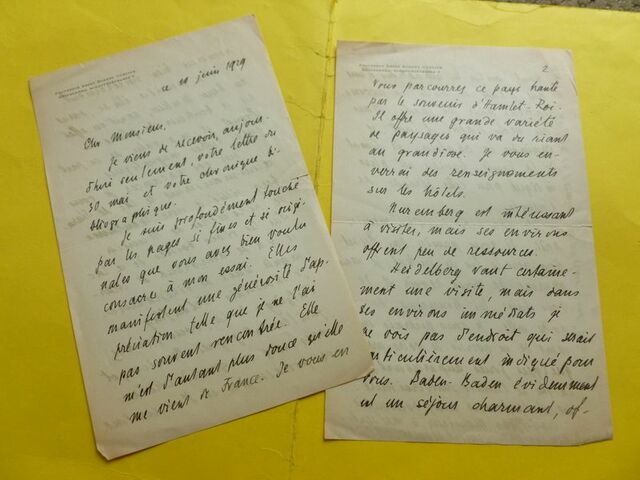 Professor Ernst Robert Curtius
ce 10 juin 1929
Cher Monsieur,
Je viens de recevoir, aujour-
d'hui seulement, votre lettre du
30 mai et votre chronique bi-
bliographique.
Je suis profondément touché
par les pages si fines et si origi-
nales que vous avez bien voulu
consacrer à mon essai. Elles
manifestent une générosité d'ap-
préciation telle que je ne l'ai
pas souvent rencontrée. Elle
m'est d'autant plus douce qu'elle
me vient de France. Je vous en
Professor Ernst Robert Curtius
2
Vous parcourrez ce pays hanté
par le souvenir d'Hamlet-Roi.
Il offre une grande variété
de paysages qui va du riant
au grandiose. Je vous en-
verrai des renseignements
sur les hôtels.
Nuremberg est intéressant
à visiter, mais ses environs
offrent peu de ressources.
Heidelberg vaut certaine-
ment une visite, mais dans
ses environs immédiats je
ne vois pas d'endroit qui serait
particulièrement indiqué pour
vous. Baden-Baden évidemment
est un séjour charmant, of-